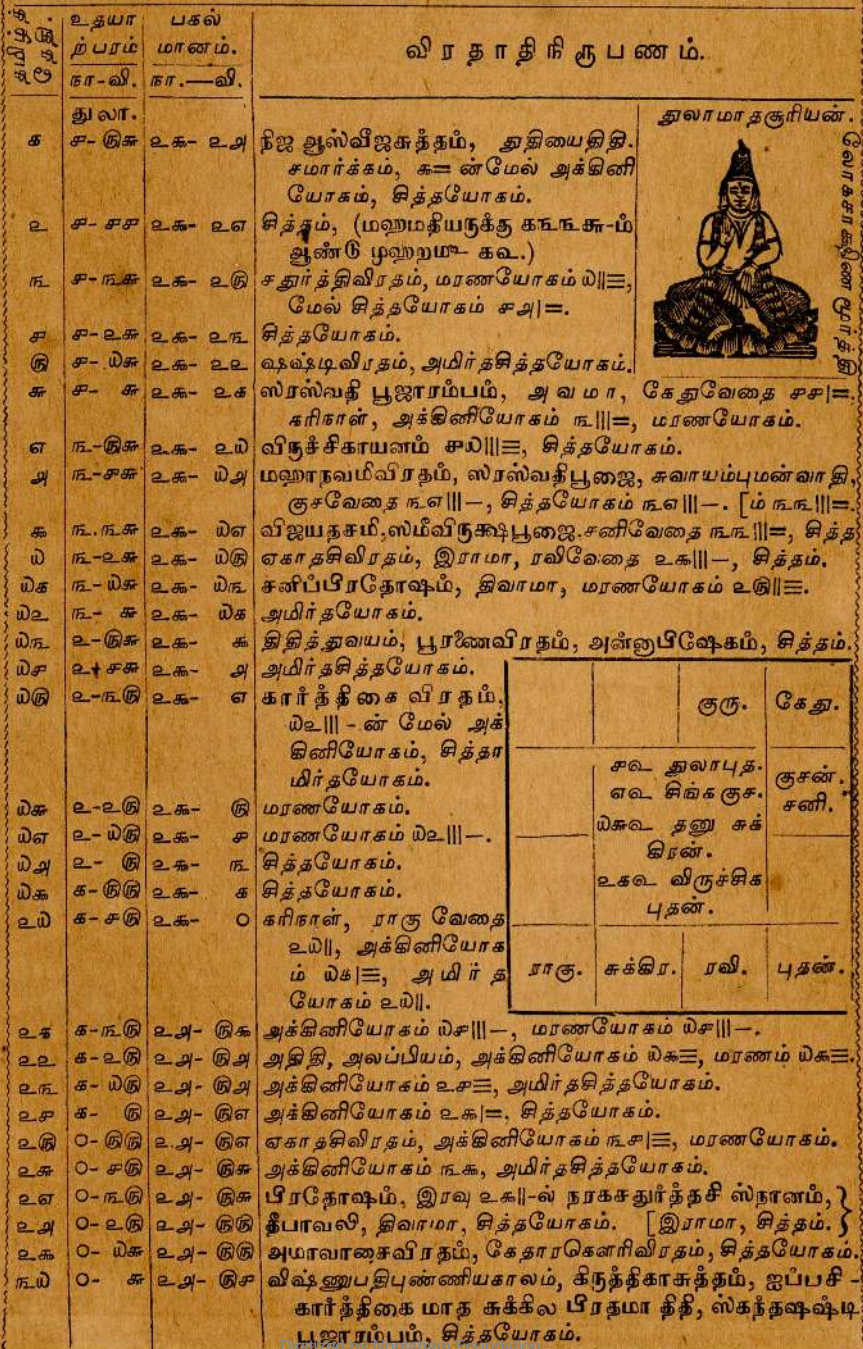 உதயா பகல்
ற்பரம் மானம்.
நா-வி. நா.—வி.
விரதாதிநிரூபணம்.
துலா.
துலாமாதசூரியன்.
க ௪- ௫௬ ௨௯- ௨௮ நிஜ ஆஸ்வீஜசுத்தம், துதியைதிதி.
சமார்க்கம், ௬= ன்மேல் அக்கினி
யோகம், சித்தயோகம்.
௨ ௪- ௪௬ ௨௯- ௨௭ சித்தம், (மஹமதியருக்கு ௧௩௩௬-ம்
ஆண்டு முஹற மீ ௧௳.)
௩ ௪-௩௬ ௨௯- ௨௫ சதுர்த்திவிரதம், மரணயோகம் ௰||≡,
மேல் சித்தயோகம் ௪௮|=.
௪ ௪-௨௬ ௨௯- ௨௩ சித்தயோகம்.
௫ ௪- ௰௬ ௨௯- ௨௨ ஷஷ்டிவிரதம், அமிர்தசித்தயோகம்.
௬ ௪- ௬ ௨௯- ௨௧ ஸரஸ்வதி பூஜாரம்பம், அவமா, கேதுவேதை ௪௪|=.
கரிநாள், அக்கினியோகம் ௩|||=, மரணயோகம்.
௭ ௩-௫௬ ௨௯- ௨௰ விருச்சிகாயனம் ௪௰|||≡, சித்தயோகம்.
௮ ௩-௪௬ ௨௯- ௰௮ மஹாநவமிவிரதம், ஸரஸ்வதிபூஜை, சுவாயம்புமன்வாதி,
குசவேதை ௩௭|||—, சித்தயோகம் ௩௭|||—. [ம் ௩௩|||=.
௯ ௩-௩௬ ௨௯- ௰௭ விஜயதசமி, ஸமீவிருக்ஷபூஜை, சனிவேதை ௩௩|||=, சித்த
௰ ௩-௨௬ ௨௯- ௰௫ ஏகாதசிவிரதம், இராமா, ரவிவேதை ௨௯|||—, சித்தம்.
௰௧ ௩- ௰௬ ௨௯- ௰௩ சனிப்பிரதோஷம், திவாமா, மரணயோகம் ௨௫||≡.
௰௨ ௩- ௬ ௨௯- ௰௧ அமிர்தயோகம்.
௰௩ ௨-௫௬ ௨௯- ௯ திதித்துவயம், பூரணைவிரதம், அன்னாபிஷேகம், சித்தம்.
௰௪ ௨-௪௬ ௨௯- ௮ அமிர்தசித்தயோகம்.
௰௫ ௨-௩௫ ௨௯- ௭ கார்த்திகை விரதம்,
௰௨||| -ன் மேல் அக்
கினியோகம், சித்தா
மிர்தயோகம்.
௰௬ ௨-௨௫ ௨௯- ௫ மரணயோகம்.
௰௭ ௨- ௰௫ ௨௯- ௪ மரணயோகம் ௰௨|||—.
௰௮ ௨- ௫ ௨௯- ௩ சித்தயோகம்.
௰௯ ௧-௫௫ ௨௯- ௧ சித்தயோகம்.
௨௰ ௧-௪௫ ௨௯- ௦ கரிநாள், ராகு வேதை
௨௰||, அக்கினியோக
ம் ௰௧|≡, அமிர்த
யோகம் ௨௰||.
குரு. கேது.
௪௳ துலாபுத.
௭௳ சிங்ககுச.
௰௬௳ தனு சுக்
கிரன்.
௨௧௳ விருச்சிக
புதன்.
குசன்.
சனி.
ராகு. சுக்கிர. ரவி. புதன்.
௨௧ ௧-௩௫ ௨௮- ௫௯ அக்கினியோகம் ௰௪|||—, மரணயோகம் ௰௪|||—.
௨௨ ௧-௨௫ ௨௮- ௫௮ அதிதி, அலப்பியம், அக்கினியோகம் ௰௯≡, மரணம் ௰௯≡.
௨௩ ௧- ௰௫ ௨௮- ௫௮ அக்கினியோகம் ௨௪≡, அமிர்தசித்தயோகம்.
௨௪ ௧- ௫ ௨௮- ௫௭ அக்கினியோகம் ௨௯|=, சித்தயோகம்.
௨௫ ௦- ௫௫ ௨௮- ௫௭ ஏகாதசிவிரதம், அக்கினியோகம் ௩௪|≡, மரணயோகம்.
௨௬ ௦- ௪௫ ௨௮- ௫௬ அக்கினியோகம் ௩௯, அமிர்தசித்தயோகம்.
௨௭ ௦-௩௫ ௨௮- ௫௬ பிரதோஷம், இரவு ௨௯||-ல் நரகசதுர்த்தசி ஸ்நானம்,
௨௮ ௦-௨௫ ௨௮- ௫௫ தீபாவலி, திவாமா, சித்தயோகம். [இராமா, சித்தம்.
௨௯ ௦- ௰௬ ௨௮- ௫௫ அமாவாசைவிரதம், கேதாரகௌரிவிரதம், சித்தயோகம்.
௩௰ ௦- ௬ ௨௮- ௫௪ விஷ்ணுபதிபுண்ணியகாலம், கிருத்திகாசுத்தம், ஐப்பசி -
கார்த்திகை மாத சுக்கில பிரதமா திதி, ஸ்கந்தஷஷ்டி
பூஜாரம்பம், சித்தயோகம்.